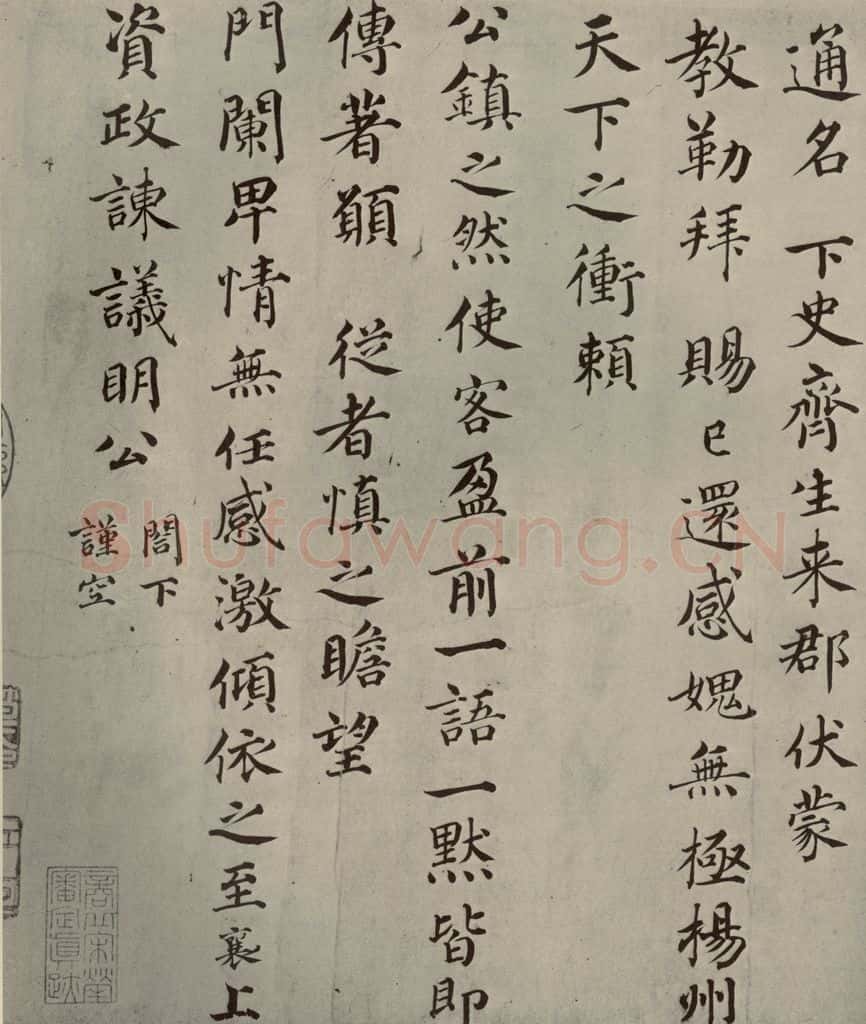 通名 下史齊生来郡伏蒙
教勒拜 賜已還感媿無極楊州
天下之衝賴
公鎮之然使客盈前一語一默皆即
傳著願 從者慎之瞻望
門闌卑情無任感激傾依之至襄上
資政諫議明公
閤下
謹空
Shufawang.CN